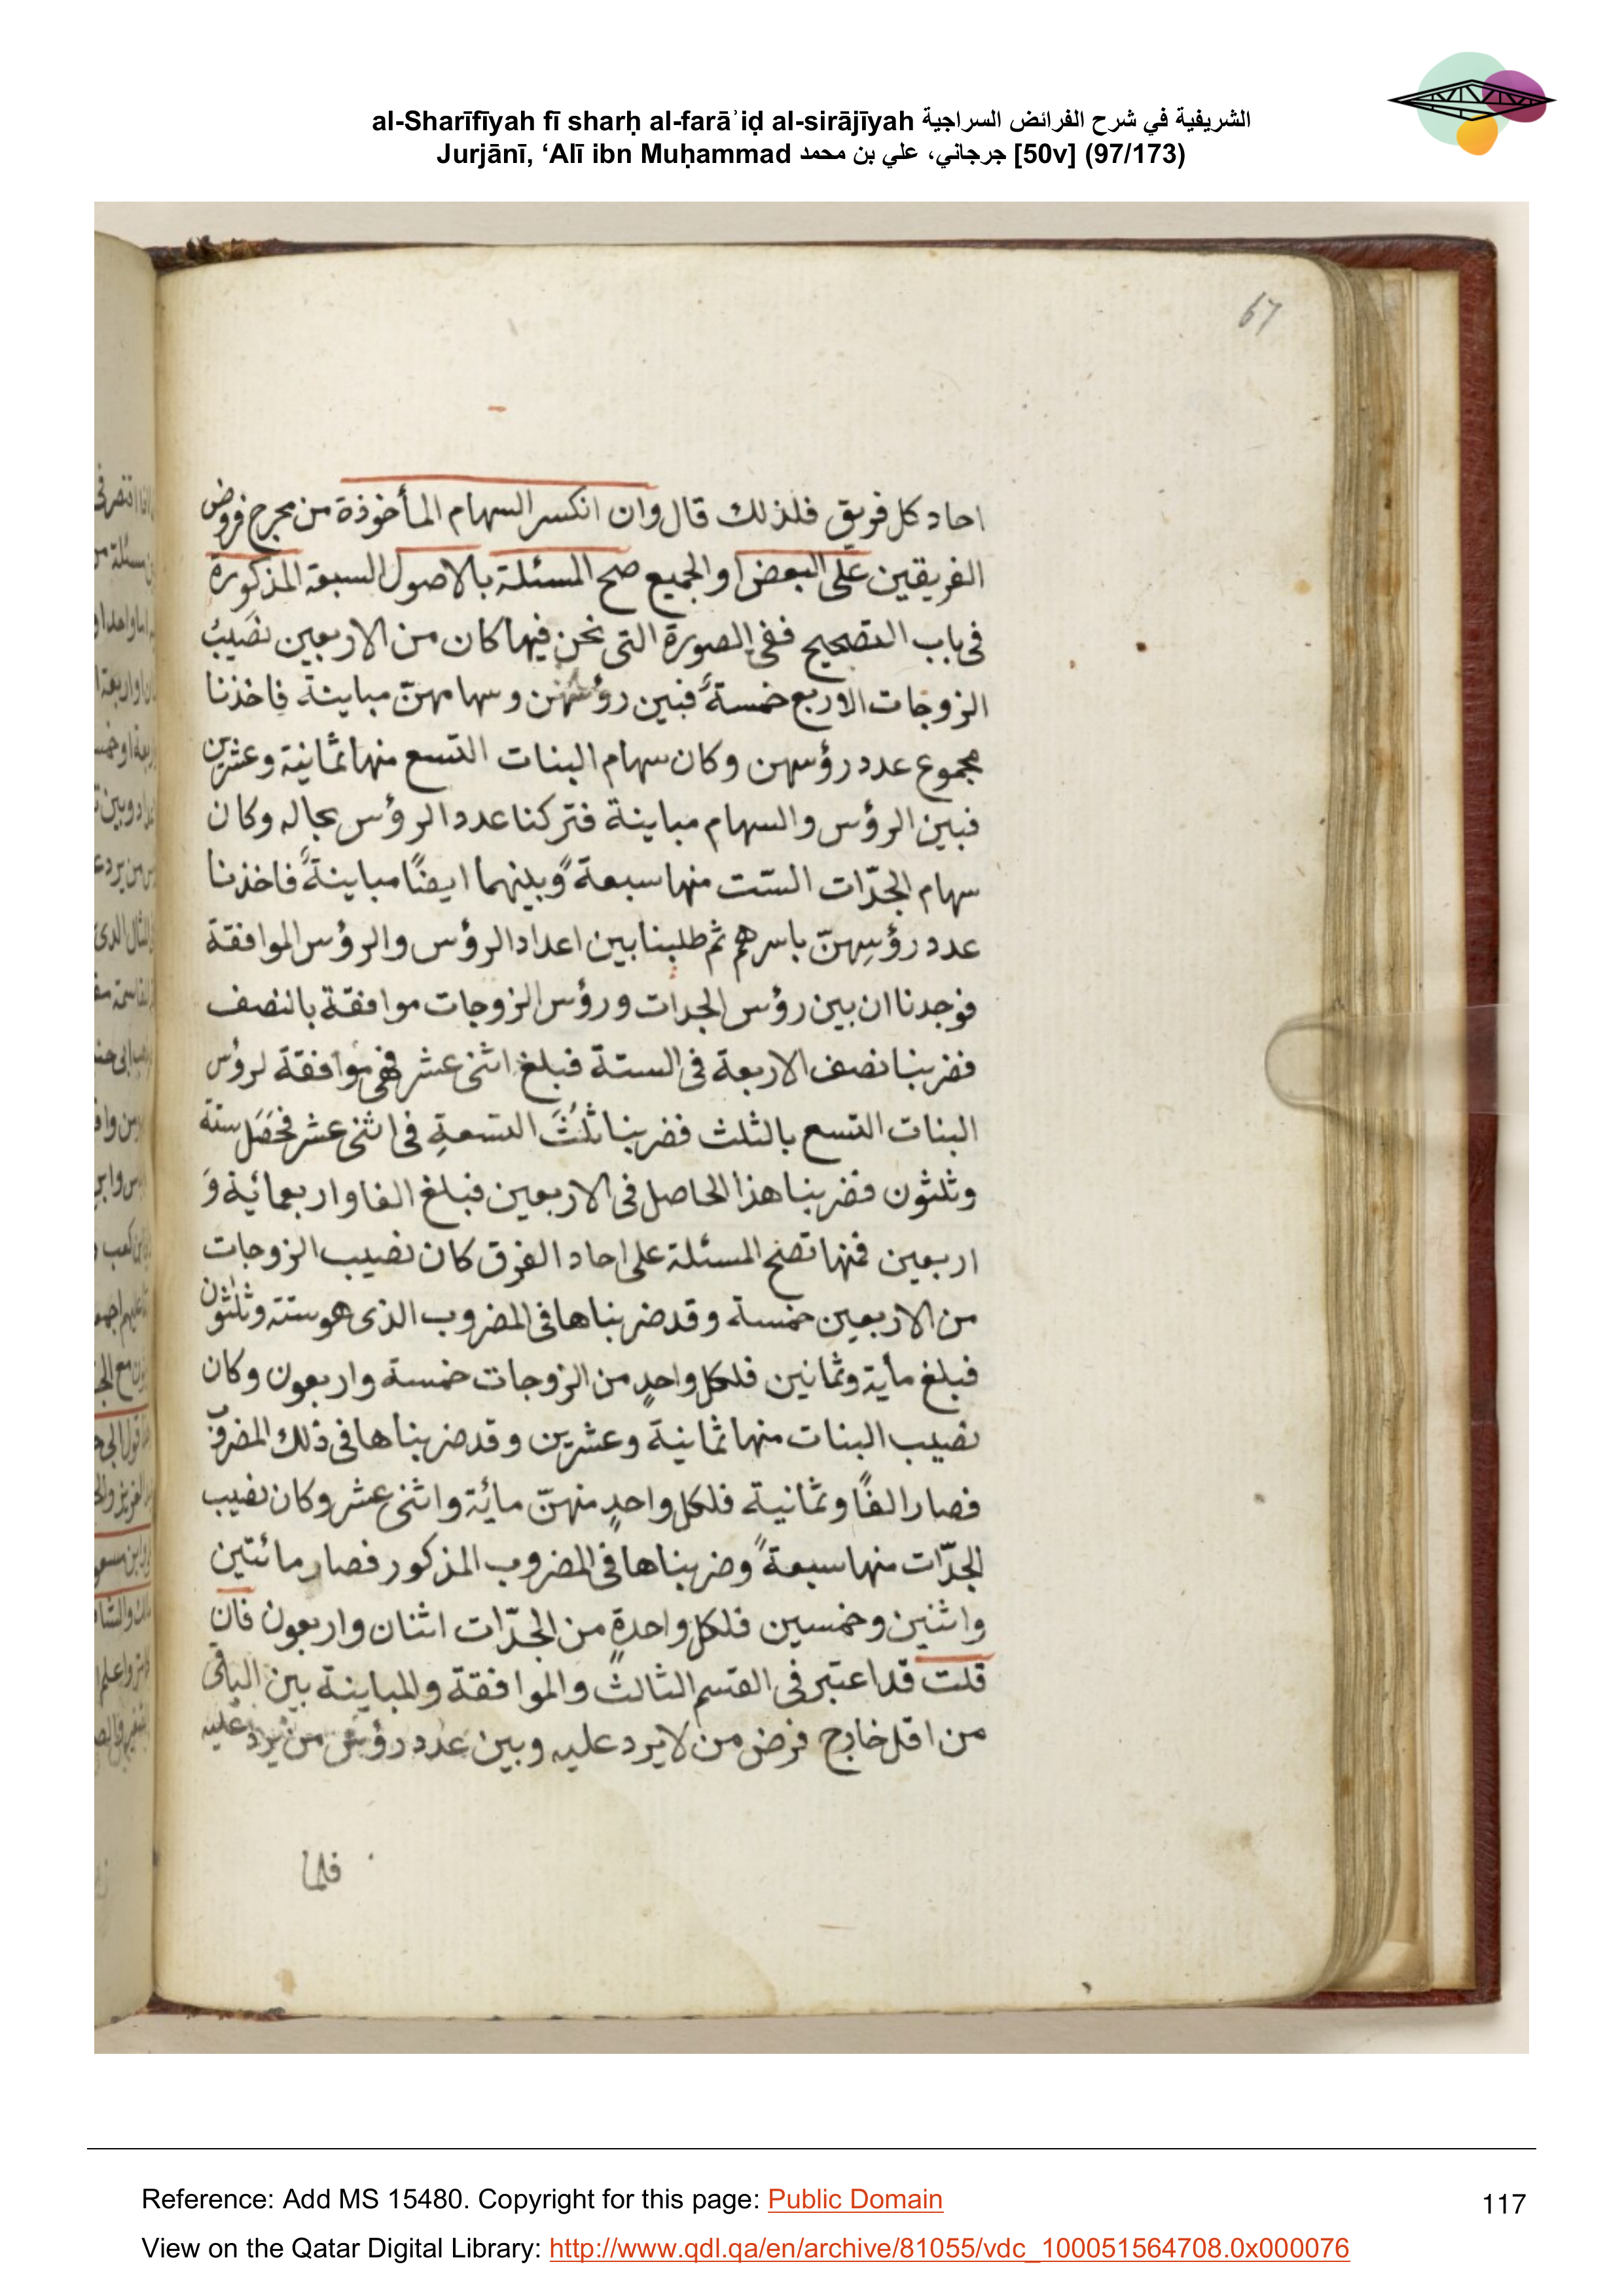 al-Sharīfīyah fī sharḥ al-farāʾiḍ al-sirājīyah الشريفية في شرح الفرائض السراجية
Jurjānī, ‘Alī ibn Muḥammad جرجاني، علي بن محمد [50v] (97/173)
67
احاد كل فريق فلذلك قال وان انكسر السهام المأخوذة من مخرج فروض
الفريقين على البعض او الجميع صحح المسئلة بالاصول السبعة المذكورة
فى باب التصحيح ففى الصورة التى نحن فيها كان من الاربعين نصَيبُ
الزوجات الاربع خمسةً فبين رؤسهن وسهامهنّ مباينة فاخذنا
مجموع عدد رؤسهن وكان سهام البنات التسع منها ثمانية وعشرين
فبين الرؤس والسهام مباينة فتركنا عدد الرؤس بحاله وكان
سهام الجدّات الستت منها سبعةً وبينهما ايضًا مباينةً فاخذنا
عدد رؤسِهنّ باسرهم ثم طلبنا بين اعداد الرؤس والرؤس الموافقة
فوجدنا ان بين رؤس الجدات ورؤس الزوجات موافقة بالنصف
فضربنا نصف الاربعة فى الستة فبلغ اثنى عشر فهى موافقة لرؤس
البنات التسع بالثلث فضربنا ثلُثَ التسعةِ فى اثنى عشر فحَصَل ستة
وثلثون فضربنا هذا الحاصل فى الاربعين فبلغ الفا واربعمائية وَ
اربعين فمنها تصح المسئلة على احاد الفرق كان نصيب الزوجات
من الاربعين خمسة وقد ضربناها فى المضروب الذى هو ستة وثلثون
فبلغ مأية وثمانين فلكل واحدٍ من الزوجات خمسة واربعون وكان
نصيب البنات منها ثمانية وعشرين وقد ضربناها فى ذلك المضروب
فصار الفًا وثمانية فلكل واحدٍ منهنّ مائة واثنى عشر وكان نصيب
الجدّات منها سبعةً وضربناها فى المضروب المذكور فصار مائتين
واثنين وخمسين فلكل واحدةٍ من الجدّات اثنان واربعون فان
قلت قد اعتبر فى القسم الثالث والموافقة والمباينة بين الباقى
من اقل خارج فرض من لا يرد عليه وبين عدد رؤس من يرد عليه
فلما
Reference: Add MS 15480. Copyright for this page: Public Domain
117
View on the Qatar Digital Library: http://www.qdl.qa/en/archive/81055/vdc_100051564708.0x000076